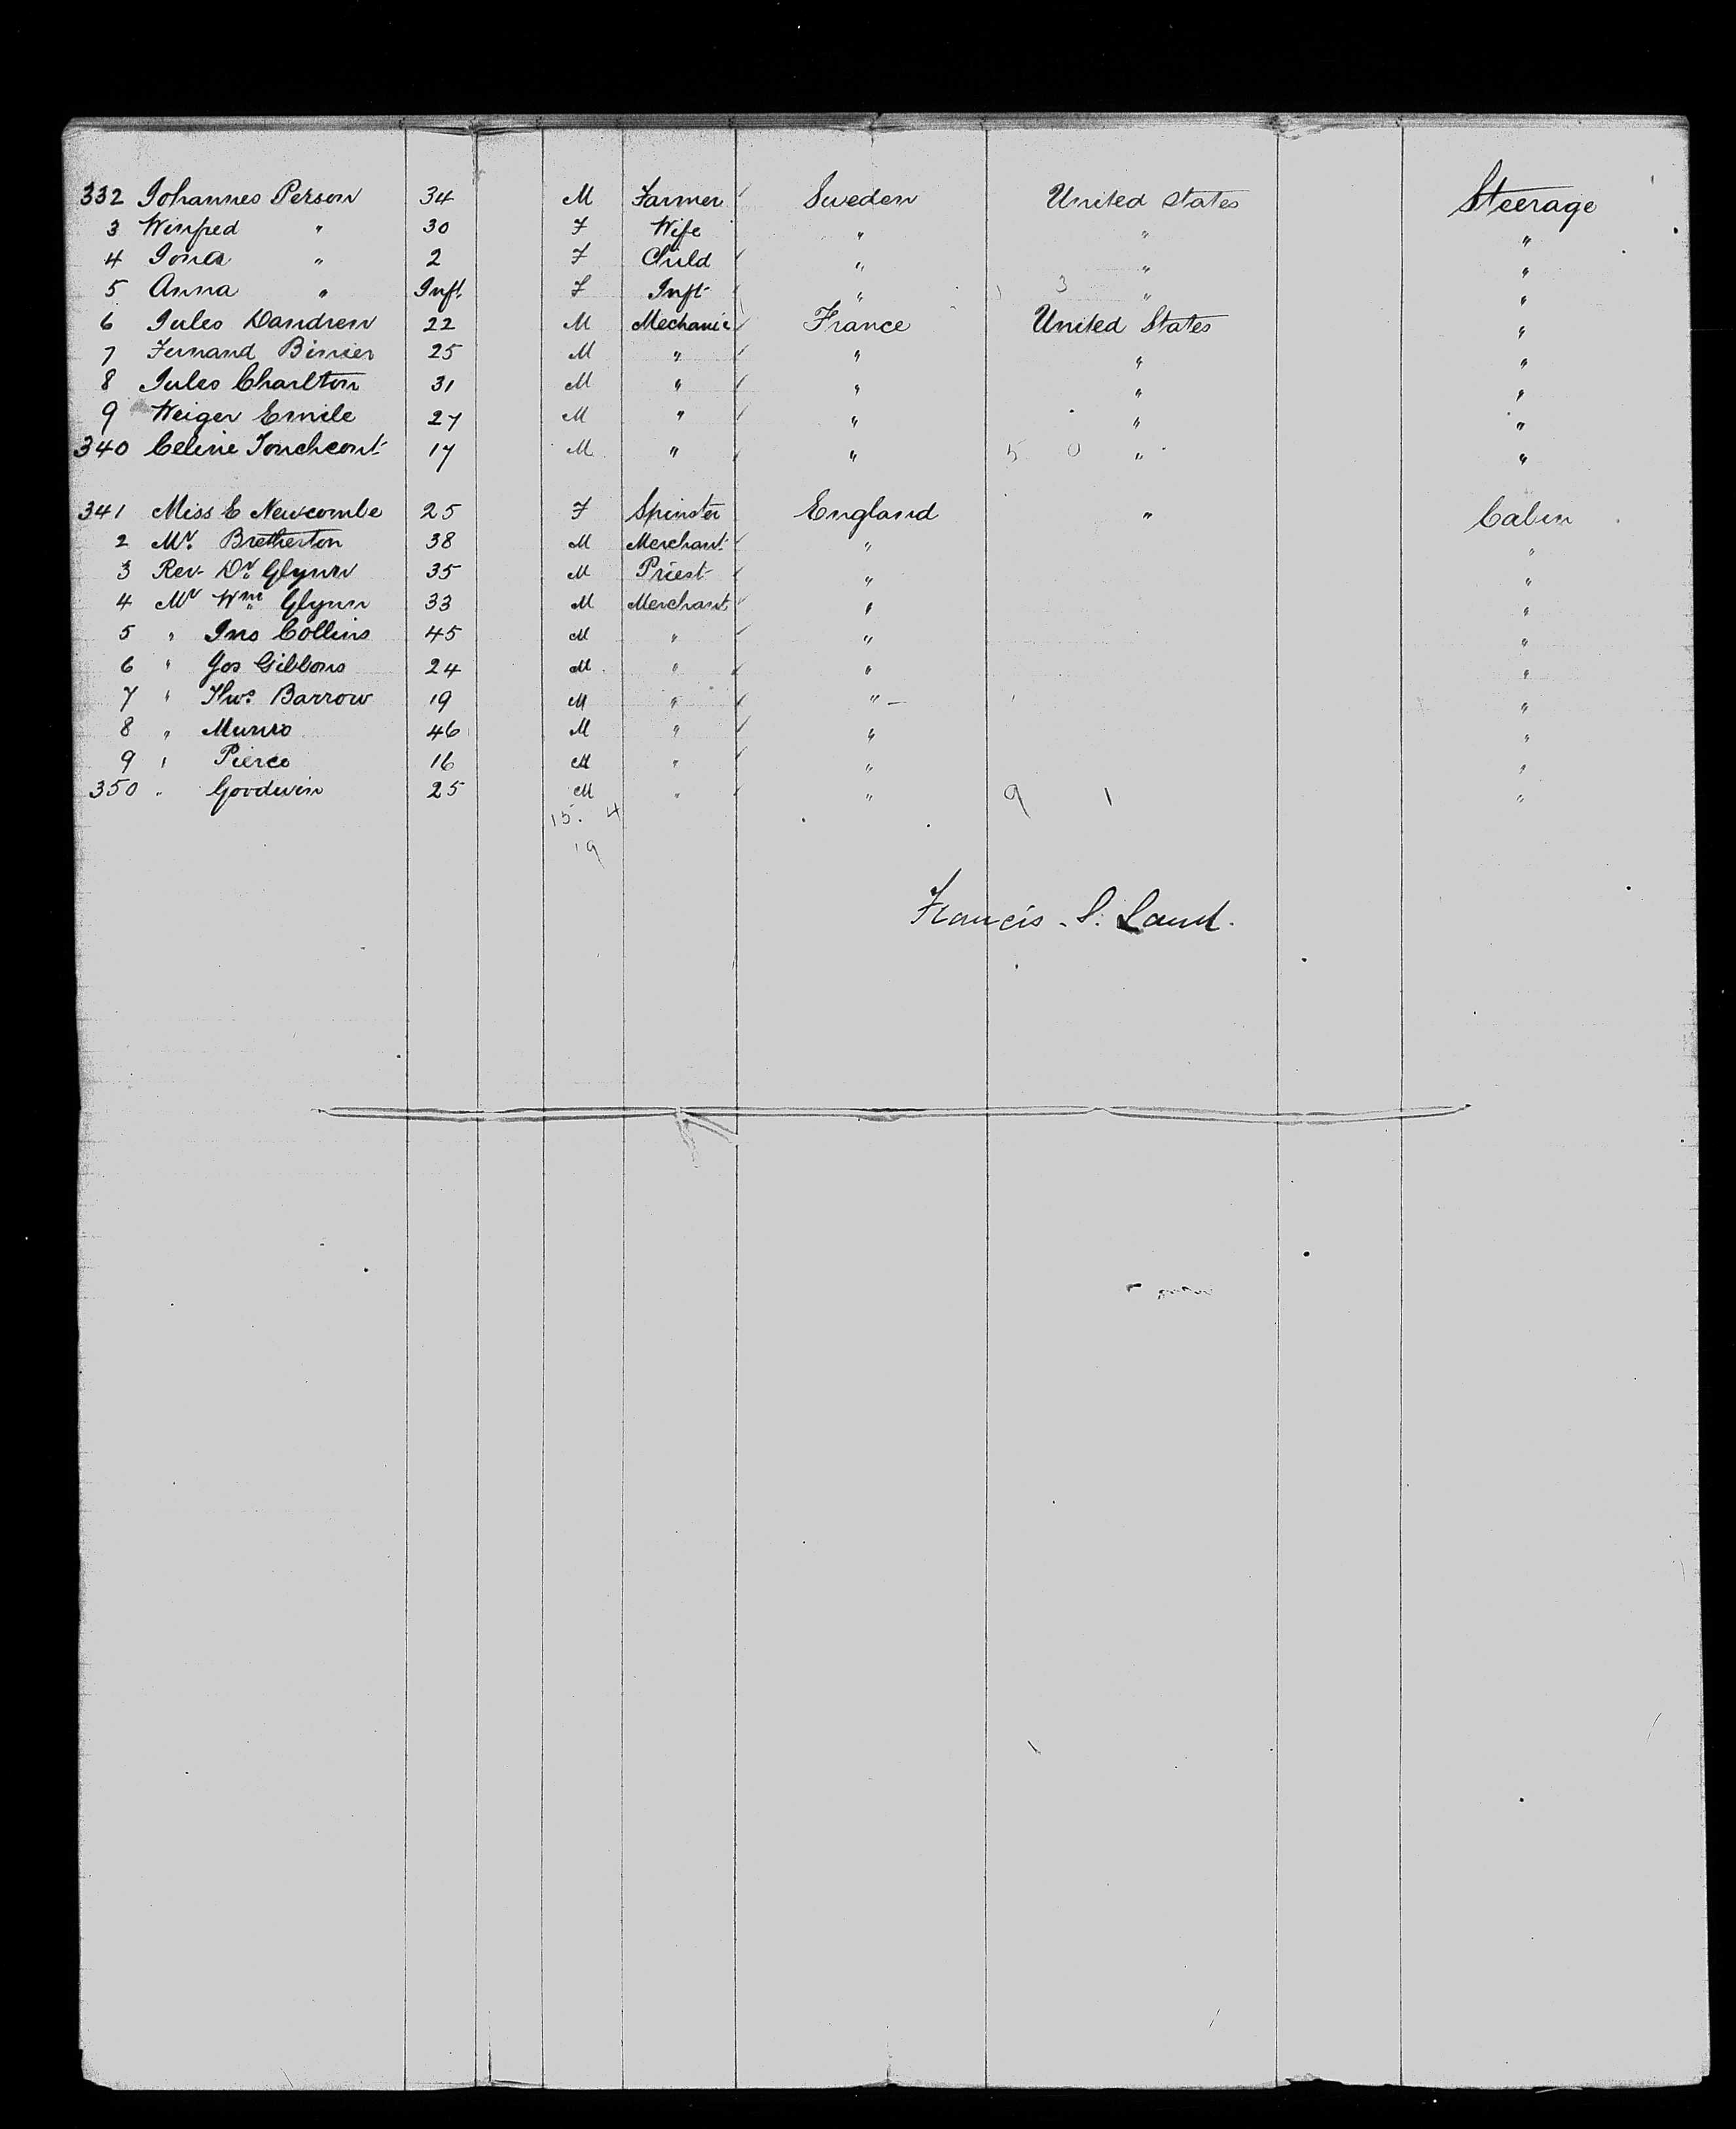 332 Johannes Person 34 M Farmer Sweden United States Steerage
3 Winfred " 30 F Wife " " "
4 Iona " 2 F Child " " "
5 Anna " Inft F Inft " 1 3 " "
6 Jules Dandren 22 M Mechanic France United States "
7 Fernand Binier 25 M " " " "
8 Jules Charlton 31 M " " " "
9 Weiger Emile 27 M " " " "
340 Celine 17 M " " 5 0 " "
341 Miss E Newcombe 25 F Spinster England " Cabin
2 Mr. Bretherton 38 M Merchant " "
3 Rev Dr. Glynn 35 M Priest " "
4 Mr Wm Glynn 33 M Merchant " "
5 " Jno Collins 45 M " " "
6 " Jos Gibbons 24 M " " "
7 " Thos Barrow 19 M " " "
8 " Munro 46 M " " "
9 " Pierce 16 M " " "
350 " Goodwin 25 M " " 9 1 "
15. 4
19
Francis S. Land.